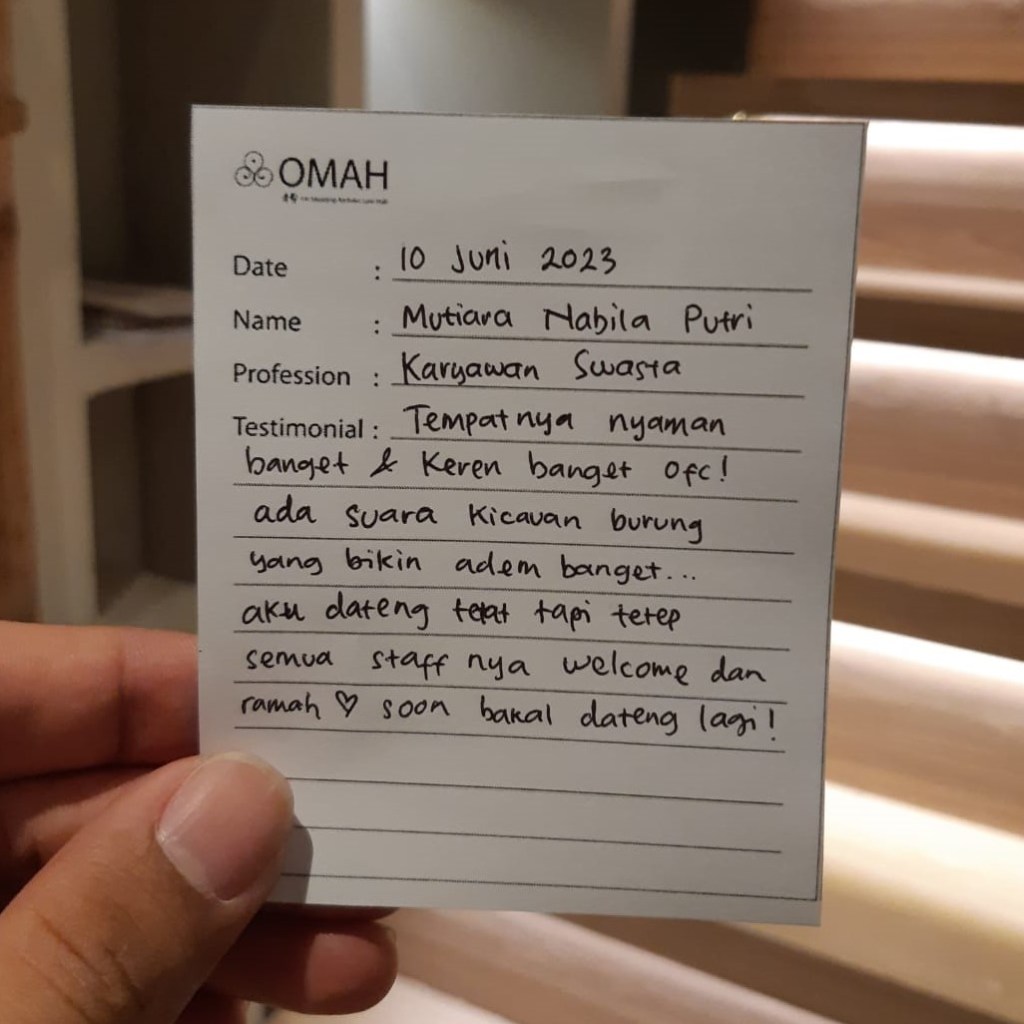 OMAH
Date : 10 Juni 2023
Name : Mutiara Nabila Putri
Profession : Karyawan Swasta
Testimonial : Tempatnya nyaman
banget & keren banget ofc!
ada suara kicauan burung
yang bikin adem banget...
aku dateng telat tapi tetep
semua staff nya welcome dan
ramah ♡ soon bakal dateng lagi!